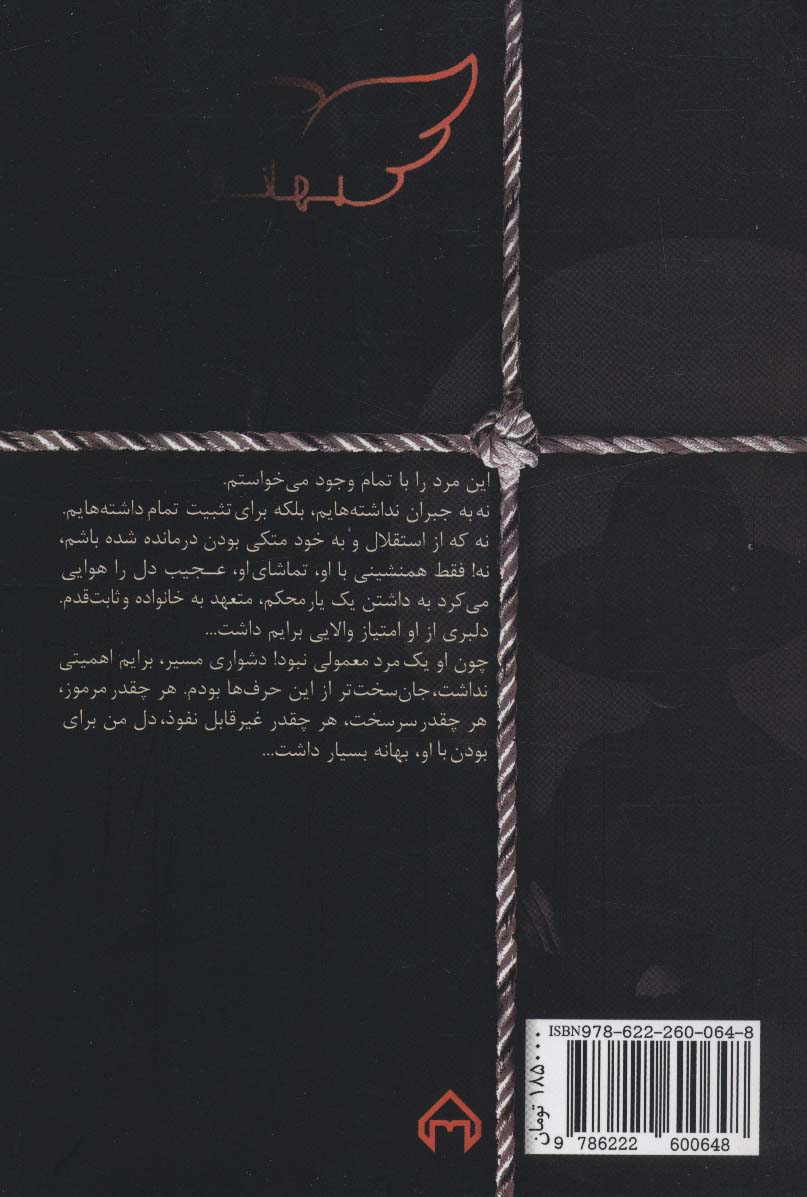 این مرد را با تمام وجود می‌خواستم.
نه به جبران نداشته‌هایم، بلکه برای تثبیت تمام داشته‌هایم.
نه که از استقلال و به خود متکی بودن درمانده شده باشم،
نه! فقط همنشینی با او، تماشای او، عجیب دل را هوایی
می‌کرد به داشتن یک یار محکم، متعهد به خانواده و ثابت‌قدم.
دلبری از او امتیاز والایی برایم داشت...
چون او یک مرد معمولی نبود! دشواری مسیر، برایم اهمیتی
نداشت، جان‌سخت‌تر از این حرف‌ها بودم. هر چقدر مرموز،
هر چقدر سرسخت، هر چقدر غیرقابل نفوذ، دل من برای
بودن با او، بهانه بسیار داشت...
ISBN978-622-260-064-8
۱۸۵۰۰۰ تومان
9 786222 600648